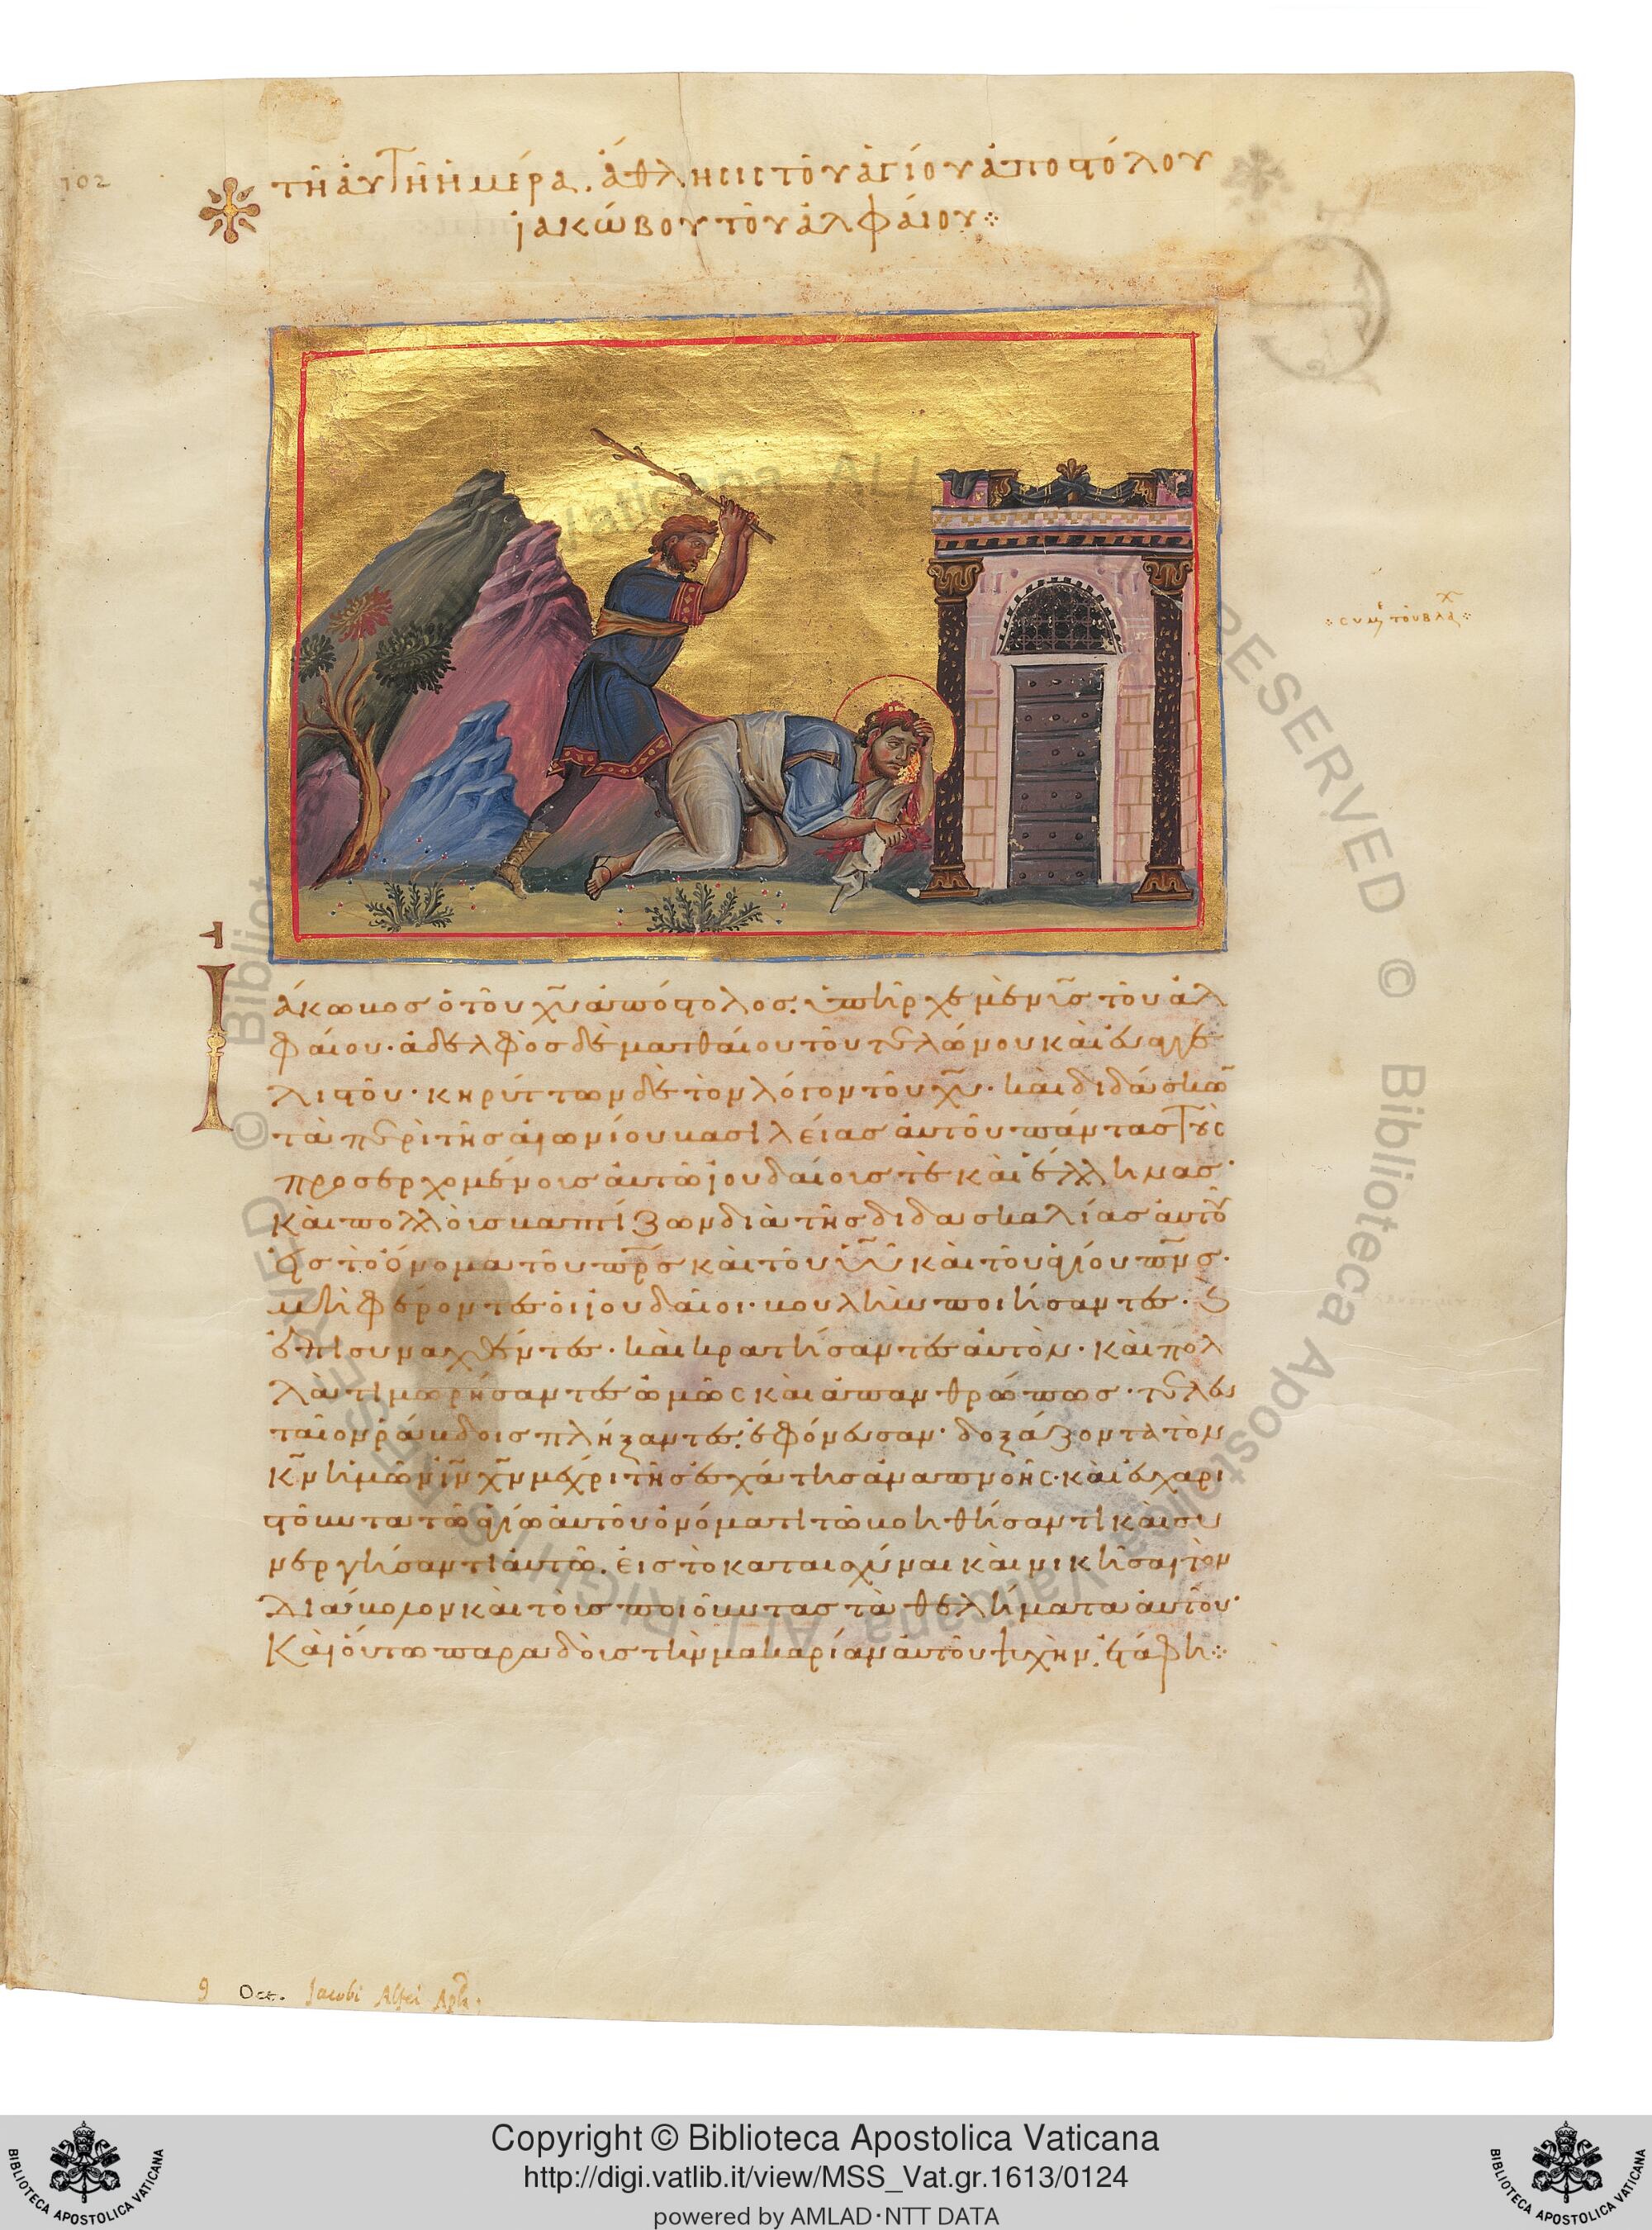 102
τῆ ἀυτῆ ἡμέρα. ἄθλησις τοῦ ἁγίου ἀποστόλου
ἰακώβου τοῦ ἀλφαίου
συμε τοῦ βλαχ
Ἰάκωβος ὁ τοῦ χυ ἀπόστολος. ὑπῆρχε μὲν υς τοῦ ἀλ
φαίου· ἀδελφὸς δὲ ματθαίου τοῦ τελώνου καὶ ἐυαγγε
λιστοῦ· κηρύττων δὲ τὸν λόγον τοῦ χυ· καὶ διδάσκω
τὰ περὶ τῆς αἰωνίου βασιλείας ἀυτοῦ πάντας τοὺς
προσερχομένοις ἀυτῶ ἰουδαίοις τὲ καὶ ἕλληνας·
καὶ πολλοῖς βαπτίζων διὰ τῆς διδασκαλίας ἀυτοῦ
εἰς τὸ ὄνομα τοῦ πρς καὶ τοῦ υυ καὶ τοῦ ἁγίου πνς·
μὴ φέροντες οἱ ἰουδαῖοι· βουλὴν ποιήσαντες· καὶ
ἐπισυναχθέντες· καὶ κρατήσαντες ἀυτὸν· καὶ πολ
λὰ τιμωρήσαντες ὠμῶς καὶ ἀπανθρώπως· τελευ
ταῖον ῥάβδοις πλήξαντες. ἐφόνευσαν· δοξάζοντα τὸν
κν ἡμῶν ιν χν μέχρι τῆς ἐσχάτης ἀναπνοῆς· καὶ ἐυχαρι
στοῦντα τῶ ἁγίω ἀυτοῦ ὀνόματι τῶ βοηθήσαντι καὶ συ
νεργήσαντι ἀυτῶ. εἰς τὸ καταισχύναι καὶ νικῆσαι τὸν
διάβολον καὶ τοῖς ποιοῦντας τὰ θελήματα ἀυτοῦ·
Καὶ οὕτω παραδοῖς τὴν μακαρίαν ἀυτοῦ ψυχὴν. ἐτάφη
9 Oct. Jacobi Alfei Apli.
Copyright © Biblioteca Apostolica Vaticana
http://digi.vatlib.it/view/MSS_Vat.gr.1613/0124
powered by AMLAD·NTT DATA
BIBLIOTECA APOSTOLICA VATICANA
BIBLIOTECA APOSTOLICA VATICANA
© Biblioteca Apostolica Vaticana ALL RIGHTS RESERVED